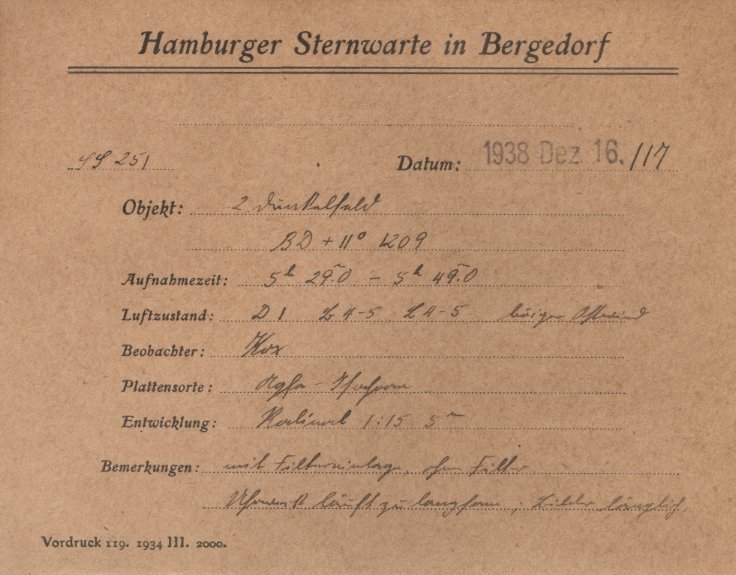 Hamburger Sternwarte in Bergedorf
SS 251 Datum: 1938 Dez 16./17
Objekt: 2 Dunkelfeld
BD + 11° 1209
Aufnahmezeit: 5h 29m.0 – 5h 49m.0
Luftzustand: D 1 L 4-5 L 4-5 böiger Ostwind
Beobachter: Kox
Plattensorte: Agfa - Isochrom
Entwicklung: Rodinal 1:15 5m
Bemerkungen: mit Filtereinlage, ohne Filter
Uhrwerk läuft zu langsam, Bilder länglich.
Vordruck 119. 1934 III. 2000.